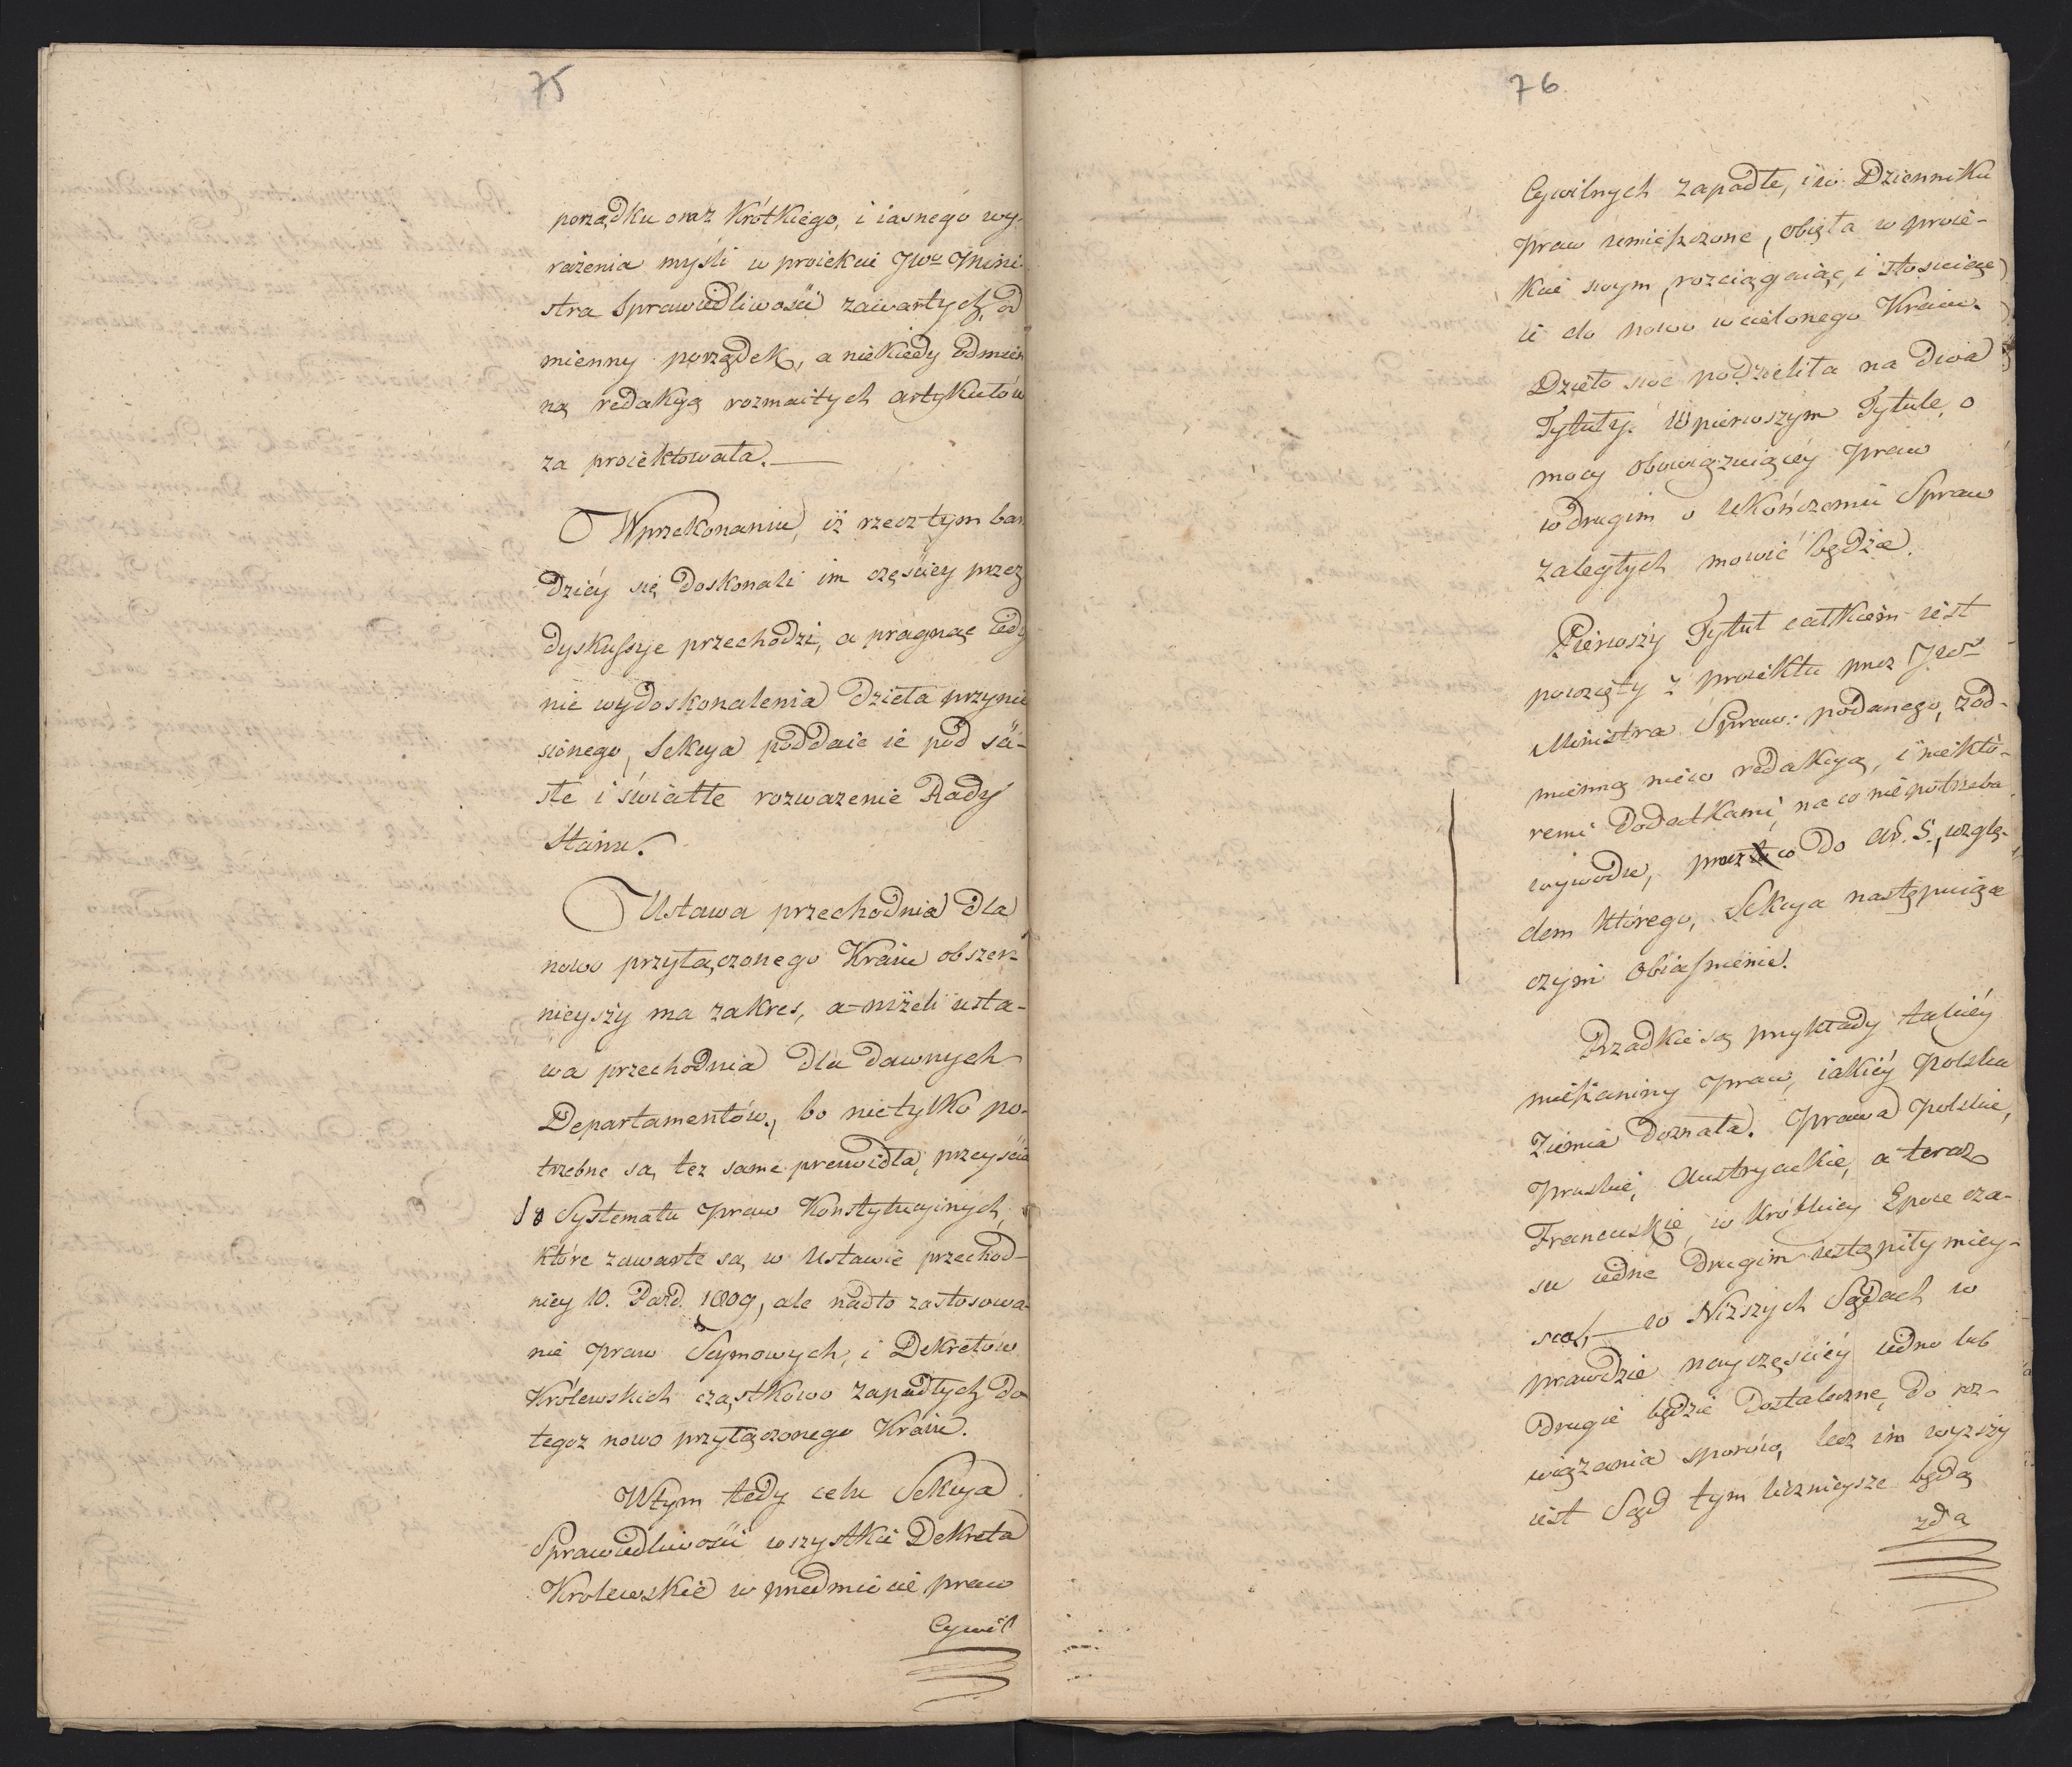 75
porządku oraz krótkiego, i iasnego wy-
rażenia myśli w proiekcie JWo Mini-
stra Sprawiedliwości zawartych, od
mienny porządek, a niekiedy odmien
ną redakcyą rozmaitych artykułów
za proiektowała.
W przekonaniu, iż rzecz tym bar
dziéy się doskonali im częściey przez
dyskussye przechodzi, a pragnąc iedy
nie wydoskonalenia dzieła przynie
sionego, Sekcya poddaie ie pod ści-
słe i światłe rozważenie Rady
Stanu.
Ustawa przechodnia dla
nowo przyłączonego Kraiu obszer-
nieyszy ma zakres, a-niżeli usta-
wa przechodnia dla dawnych
Departamentów, bo nietylko po-
trzebne są też same prawidła, przeyścia
do Systematu Praw Konstytucyinych,
które zawarte są w Ustawie przechod-
niey 10. Paźd. 1809, ale nadto zastosowa-
nie Praw Seymowych, i Dekretów
Królewskich cząstkowo zapadłych do
tegoż nowo przyłączonego Kraiu.
W tym tedy celu Sekcya
Sprawiedliwości wszystkie Dekreta
Krolewskie w przedmiocie praw
Cywil
76
Cywilnych zapadłe, i w Dzienniku
Praw umieszczone, obięła w proie-
kcie swym, rozciągaiąc, i stosuiąc
ie do nowo wcielonego Kraiu.
Dzieło swe podzieliła na dwa
Tytuły. W pierwszym Tytule, o
mocy obowiązuiącéy Praw
w drugim o ukończeniu Spraw
zaległych mowić będzie.
Pierwszy Tytuł całkiem iest
powzięty z proiektu przez JWo
Ministra Spraw: podanego, z od-
mienną nieco redakcyą, i niektó-
remi dodatkami, na co nie potrzeba
wywodu, prócz co do Ar. 5., wzglę-
dem którego, Sekcya następuiące
czyni obiaśnienie.
Rzadkie są przykłady takiéy
mieszaniny Praw, iakiéy Polska
Ziemia doznała. Prawa Polskie,
Pruskie, Austryackie, a teraz
Francuskie, w krótkiey Epoce cza-
su iedne drugim ustąpiły miey-
sca, — w Niższych Sądach w
prawdzie nayczęściéy iedno lub
drugie będzie dostateczne, do roz-
wiązania sporów, lecz im wyższy
iest Sąd tym licznieysze będą
zda